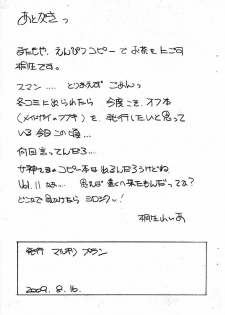 あとがきっ
またもや、えんぴつコピーでお茶をにごす
桐生です。
スマン.... とりあえず ごめんっ
冬コミに出られたら 今度こそ、オフ本
を、発行したいと思って
いる今日この頃...
何回言ってんだろ....
女神さまのコピー本は出るんだろうけどね。
Vol.11かぁ.... 思えば遠くへ来たもんだってね？
どこかで見かけたら ヨロシクッ!
桐生れいあ
発行
2009. 8. 16.